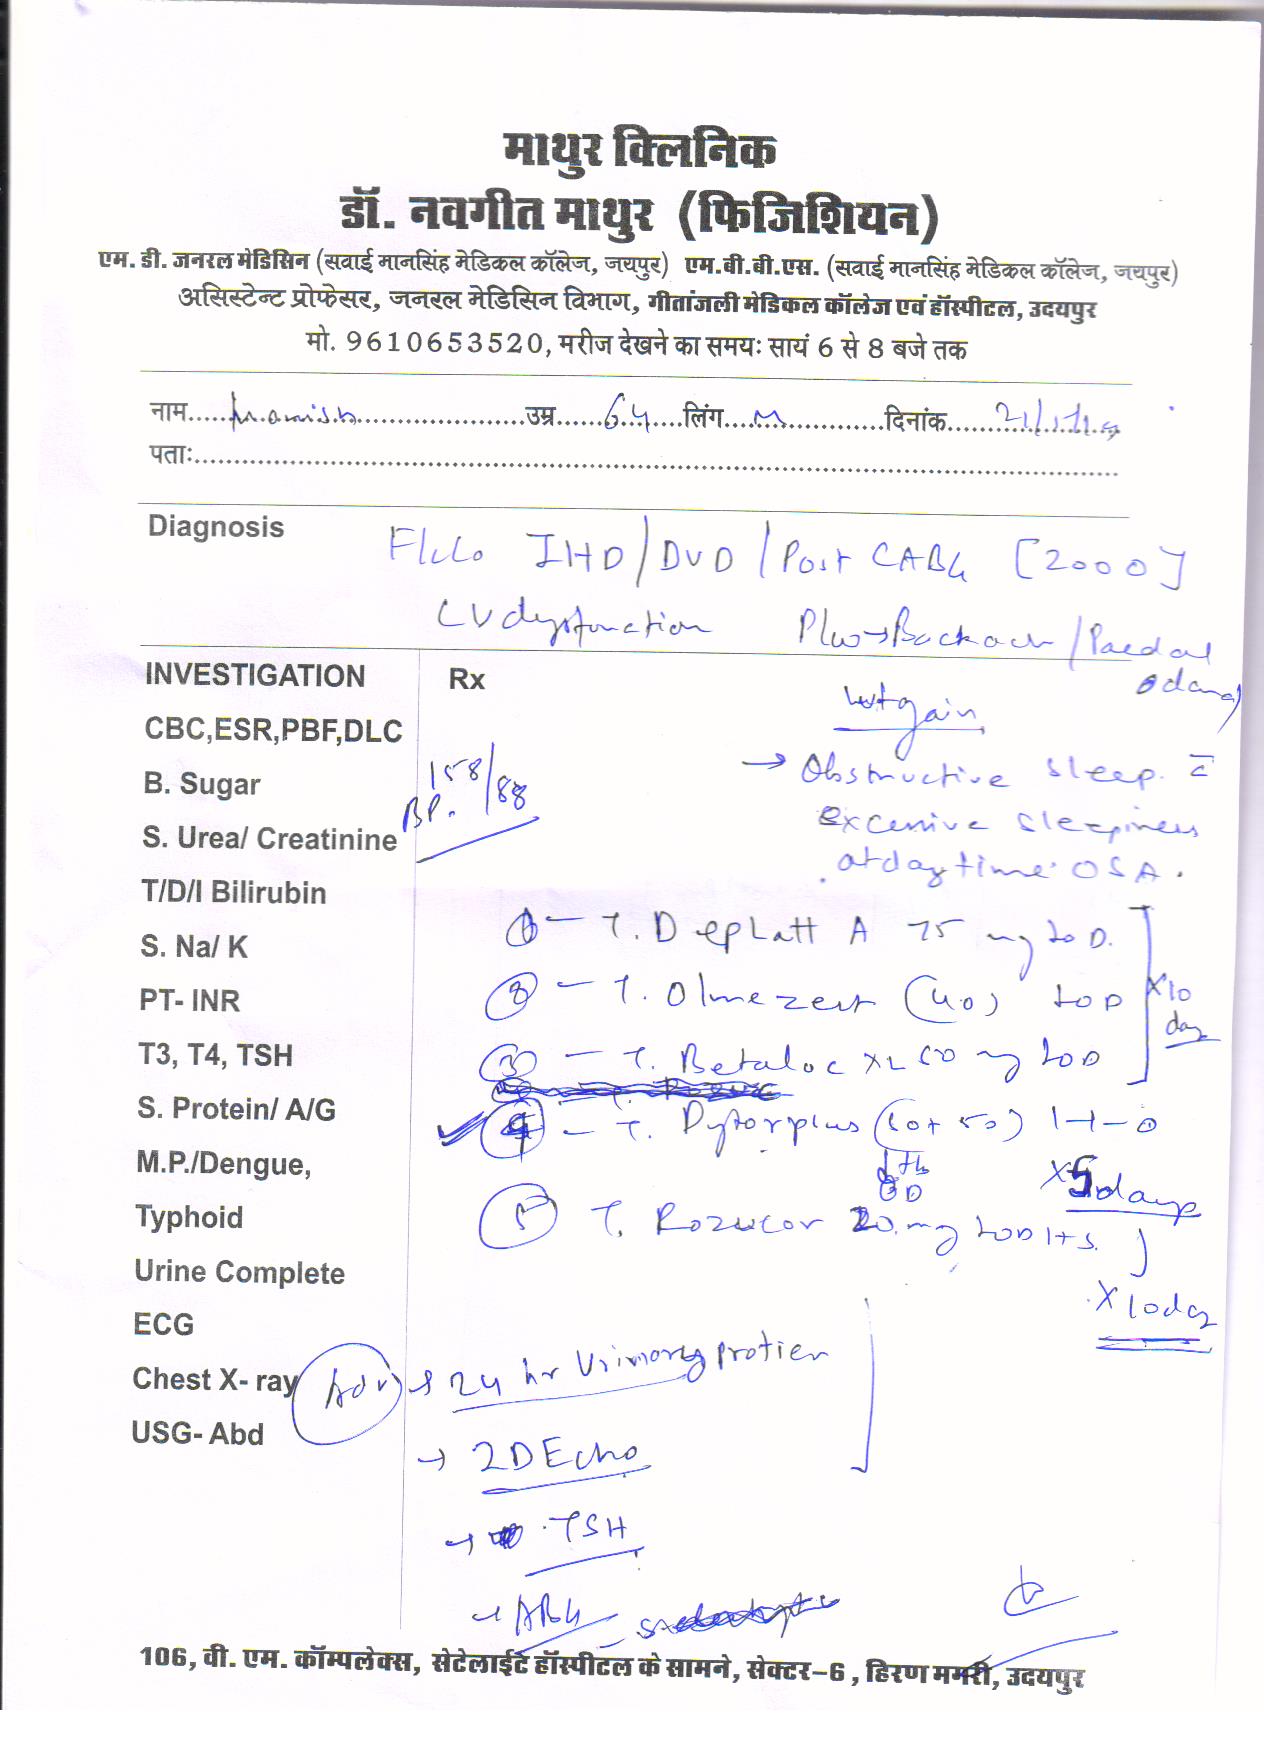 माथुर क्लिनिक
डॉ. नवगीत माथुर (फिजिशियन)
एम. डी. जनरल मेडिसिन (सवाई मानसिंह मेडिकल कॉलेज, जयपुर) एम.बी.बी.एस. (सवाई मानसिंह मेडिकल कॉलेज, जयपुर)
असिस्टेन्ट प्रोफेसर, जनरल मेडिसिन विभाग, गीतांजली मेडिकल कॉलेज एवं हॉस्पीटल, उदयपुर
मो. 9610653520, मरीज देखने का समयः सायं 6 से 8 बजे तक
नाम.....उम्र.....64.....लिंग.....M.....दिनांक.....
पताः.....
Diagnosis
IHD/DVD/Post CABG [2000]
LV dysfunction
INVESTIGATION
Rx
wt gain
CBC,ESR,PBF,DLC
→ Obstructive sleep. c̄
B. Sugar
BP. 158/88
excessive sleepiness
S. Urea/ Creatinine
at day time OSA.
T/D/I Bilirubin
① – T. Deplatt A 75 mg
S. Na/ K
② – T. Olmezest (40)
x 10 day
PT- INR
T3, T4, TSH
③ – T. Betaloc XL 50 mg
S. Protein/ A/G
④ – T. Dytorplus (10+50) 1-1-0
M.P./Dengue,
x 5 days
Typhoid
⑤ T. Rozucor 20 mg
Urine Complete
x 10 day
ECG
Chest X- ray
Adv → 24 hr Urinary protien
USG- Abd
→ 2D Echo
→ TSH
→ ABG
106, वी. एम. कॉम्पलेक्स, सेटेलाईट हॉस्पीटल के सामने, सेक्टर-6, हिरण मगरी, उदयपुर